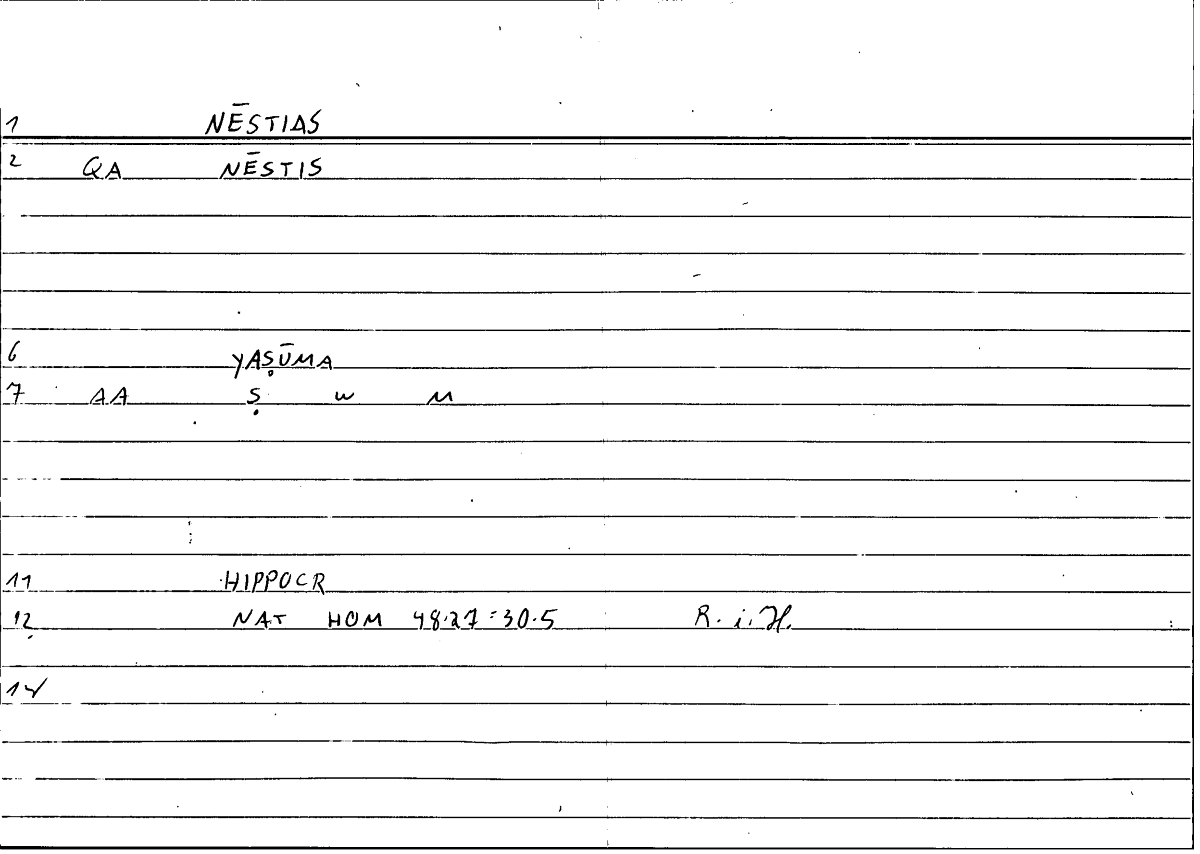 1 NĒSTIAS
2 QA NĒSTIS
6 YAṢŪMA
7 AA Ṣ w M
11 HIPPOCR
12 NAT HOM 48.27=30.5 R. i. H.
14